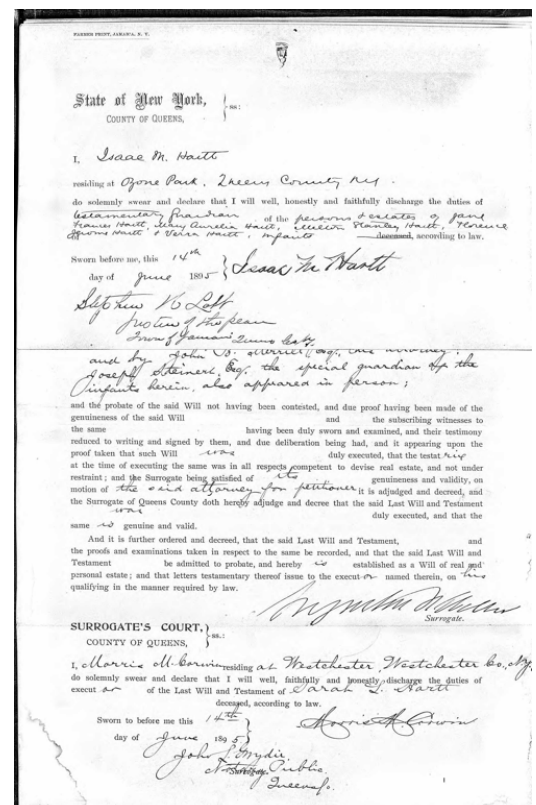 FARMER PRINT, JAMAICA, N. Y.
State of New York,
COUNTY OF QUEENS, } ss:
I, Isaac M. Hartt
residing at Ozone Park, Queens County N.Y.
do solemnly swear and declare that I will well, honestly and faithfully discharge the duties of
testamentary guardian of the persons & estates of Jane
Frances Hartt, Mary Aurelia Hartt, Stanley Hartt, Florence
Hartt & Verra Hartt, infants deceased, according to law.
Sworn before me, this 14th
day of June 1895 } Isaac M Hartt
Stephen Lott
Justice of the peace
Town of Jamaica Queens Co
and by John Merrill, Esq., his attorney;
Joseph Steinert, Esq. the special guardian of the
infants herein, also appeared in person;
and the probate of the said Will not having been contested, and due proof having been made of the
genuineness of the said Will and the subscribing witnesses to
the same having been duly sworn and examined, and their testimony
reduced to writing and signed by them, and due deliberation being had, and it appearing upon the
proof taken that such Will was duly executed, that the testatrix
at the time of executing the same was in all respects competent to devise real estate, and not under
restraint; and the Surrogate being satisfied of its genuineness and validity, on
motion of the said attorney for petitioner it is adjudged and decreed, and
the Surrogate of Queens County doth hereby adjudge and decree that the said Last Will and Testament
was duly executed, and that the
same is genuine and valid.
And it is further ordered and decreed, that the said Last Will and Testament, and
the proofs and examinations taken in respect to the same be recorded, and that the said Last Will and
Testament be admitted to probate, and hereby is established as a Will of real and
personal estate; and that letters testamentary thereof issue to the executor named therein, on his
qualifying in the manner required by law.
Surrogate.
SURROGATE'S COURT,
COUNTY OF QUEENS, } ss.:
I, Morris M. Corwin residing at Westchester, Westchester Co., N.Y.
do solemnly swear and declare that I will well, faithfully and honestly discharge the duties of
executor of the Last Will and Testament of Sarah L. Hartt
deceased, according to law.
Sworn to before me this 14th
day of June 1895 } Morris M. Corwin
John L.
Surrogate.
Notary Public
Queens Co.